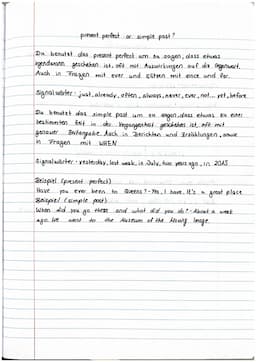 present perfect or simple past?
Du benutzt das present perfect um zu sagen, dass etwas
irgendwann geschehen ist, oft mit Auswirkungen auf die Gegenwart.
Auch in Fragen mit ever und Sätzen mit since und for.
Signalwörter: just, already, often, always, never, ever, not... yet, before
Du benutzt das simple past um zu sagen, dass etwas zu einer
bestimmten Zeit in der Vergangenheit geschehen ist, oft mit
genauer Zeitangabe. Auch in Berichten und Erzählungen, sowie
in Fragen mit WHEN
Signalwörter: yesterday, last week, in July, two years ago, in 2015
Beispiel (present perfect)
Have you ever been to Queens? - Yes, I have. It's a great place
Beispiel (simple past)
When did you go there and what did you do? - About a week
ago. We went to the Museum of the Moving Image.